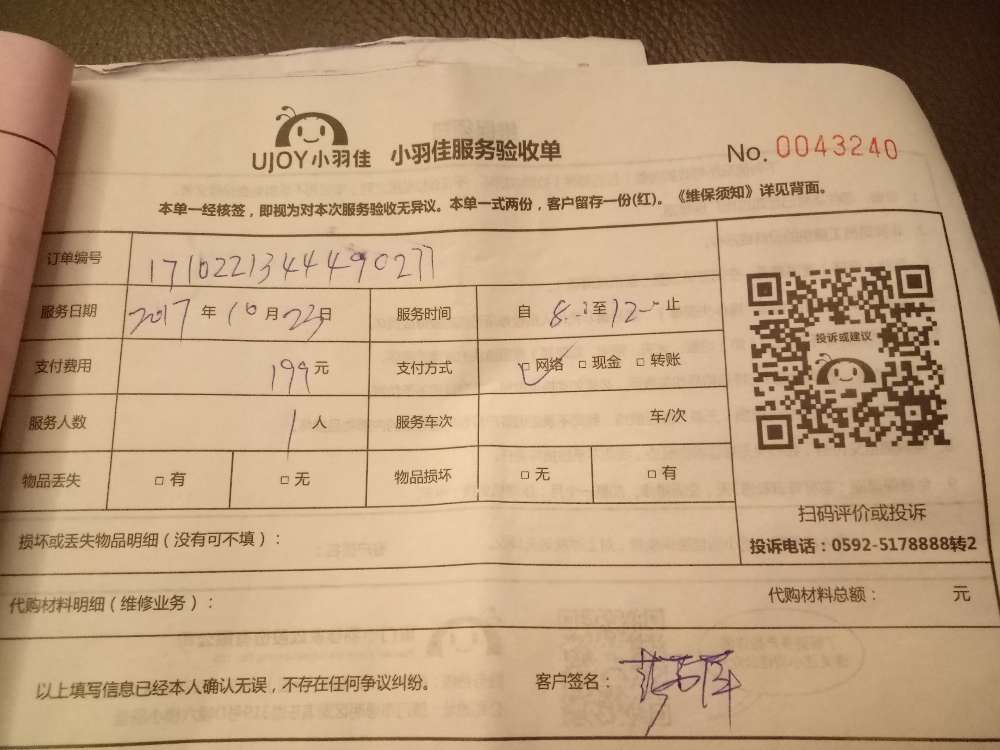 UJOY小羽佳 小羽佳服务验收单 No. 0043240
本单一经核签，即视为对本次服务验收无异议。本单一式两份，客户留存一份(红)。《维保须知》详见背面。
订单编号 1710221344490277
服务日期 2017 年 10 月 23 日 服务时间 自 8:: 至 12:- 止
支付费用 199 元 支付方式 □ 网络 □ 现金 □ 转账
服务人数 1 人 服务车次 车/次
物品丢失 □ 有 □ 无 物品损坏 □ 无 □ 有
投诉或建议
扫码评价或投诉
投诉电话：0592-5178888转2
损坏或丢失物品明细（没有可不填）：
代购材料明细（维修业务）： 代购材料总额： 元
以上填写信息已经本人确认无误，不存在任何争议纠纷。 客户签名：